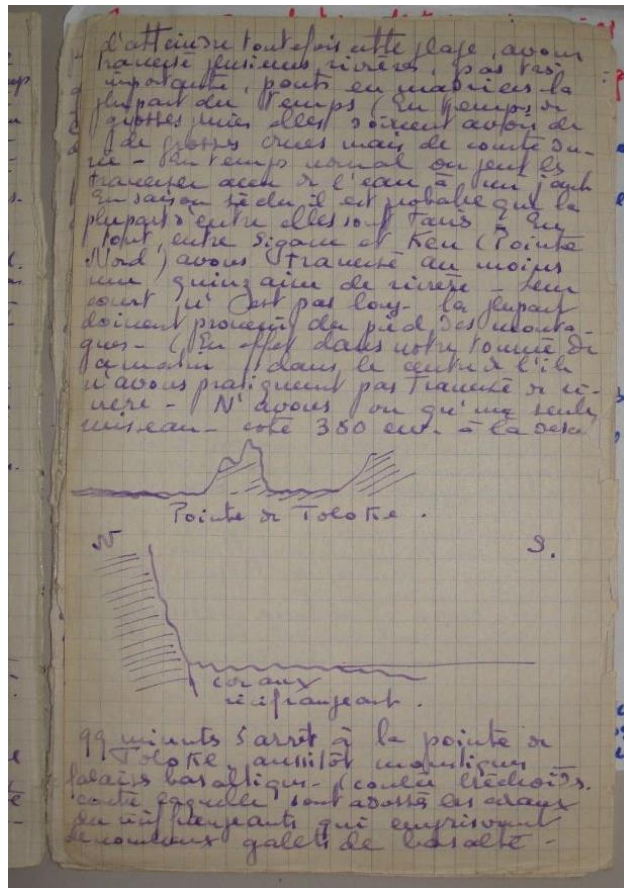 d'atteindre toutefois cette plage, avons
traversé plusieurs rivières, pas très
importante, ponts en madriers la
plupart du temps (En temps de
grosses pluies elles doivent avoir de
de grosses crues mais de courte du-
rée - En temps normal on peut les
traverser avec de l'eau à mi jambe
En saison sèche il est probable que la
plupart d'entre elles sont taries - En
tout, entre Sigave et (Pointe
Nord) avons traversé au moins
une quinzaine de rivière - Leur
court n'est pas long - la plupart
doivent provenir du pied des monta-
gnes - (En effet dans notre tournée de
ce matin dans le centre de l'île
n'avons pratiquement pas traversé de ri-
vière - N'avons vu qu'un seul
ruisseau - cote 380 env. à la desc
Pointe de Toloke.
N S.
coraux
récif frangeant.
99 minuts d'arrêt à la pointe de
Toloke, aussitôt magnifiques
falaises basaltiques - (coulée
contre laquelle sont adossés les coraux
du récif frangeants qui emprisonnent
de nombreux galets de basalte -